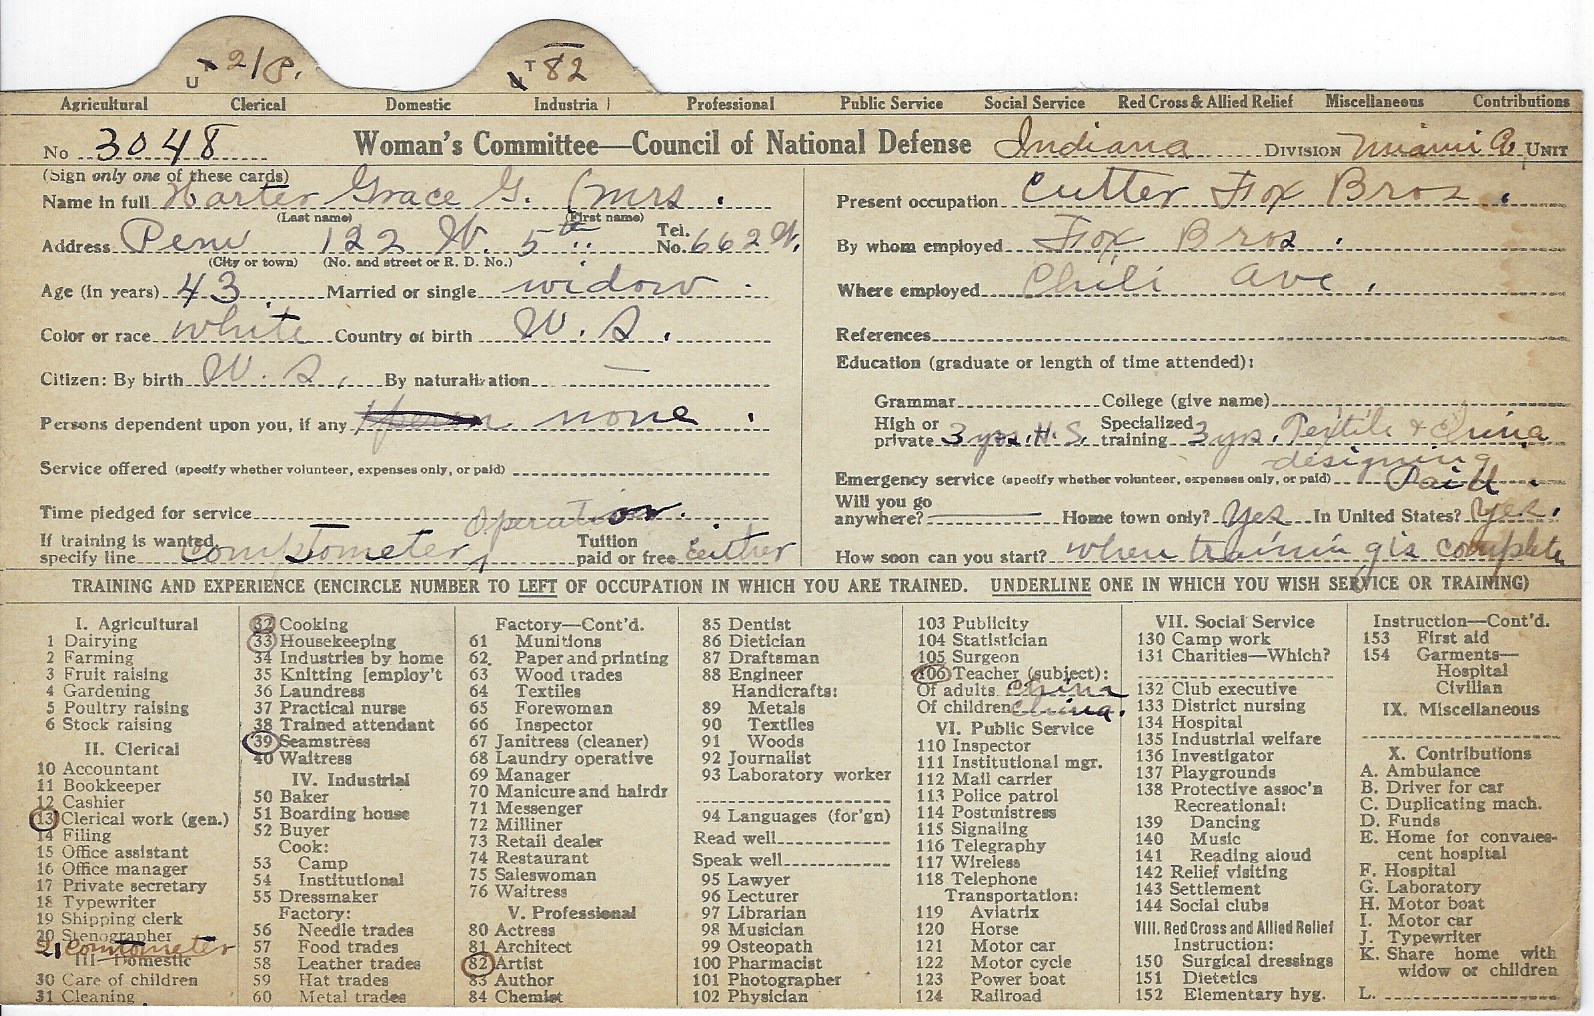 U T 2/P. T 82
Agricultural Clerical Domestic Industrial Professional Public Service Social Service Red Cross & Allied Relief Miscellaneous Contributions
No 3048 Woman's Committee—Council of National Defense Indiana DIVISION Miami Co. UNIT
(Sign only one of these cards)
Name in full Harter Grace G. (Mrs.
(Last name) (First name)
Address Peru 122 W. 5th Tel. No. 662 W.
(City or town) (No. and street or R. D. No.)
Age (in years) 43 Married or single widow
Color or race white Country of birth U. S.
Citizen: By birth U. S. By naturalization —
Persons dependent upon you, if any none
Service offered (specify whether volunteer, expenses only, or paid)
Time pledged for service
If training is wanted specify line comptometer operator. Tuition paid or free either
Present occupation Cutter Fox Bros.
By whom employed Fox Bros.
Where employed Chili Ave.
References
Education (graduate or length of time attended):
Grammar College (give name)
High or private 3 yrs. H. S. Specialized training 3 yrs. Textile & China designing
Emergency service (specify whether volunteer, expenses only, or paid) Paid.
Will you go anywhere? — Home town only? Yes In United States? Yes.
How soon can you start? when training is complete
TRAINING AND EXPERIENCE (ENCIRCLE NUMBER TO LEFT OF OCCUPATION IN WHICH YOU ARE TRAINED. UNDERLINE ONE IN WHICH YOU WISH SERVICE OR TRAINING)
I. Agricultural
1 Dairying
2 Farming
3 Fruit raising
4 Gardening
5 Poultry raising
6 Stock raising
II. Clerical
10 Accountant
11 Bookkeeper
12 Cashier
13 Clerical work (gen.)
14 Filing
15 Office assistant
16 Office manager
17 Private secretary
18 Typewriter
19 Shipping clerk
20 Stenographer
21 Comtometer
III Domestic
30 Care of children
31 Cleaning
32 Cooking
33 Housekeeping
34 Industries by home
35 Knitting [employ't
36 Laundress
37 Practical nurse
38 Trained attendant
39 Seamstress
40 Waitress
IV. Industrial
50 Baker
51 Boarding house
52 Buyer
Cook:
53 Camp
54 Institutional
55 Dressmaker
Factory:
56 Needle trades
57 Food trades
58 Leather trades
59 Hat trades
60 Metal trades
Factory—Cont'd.
61 Munitions
62. Paper and printing
63 Wood trades
64 Textiles
65 Forewoman
66 Inspector
67 Janitress (cleaner)
68 Laundry operative
69 Manager
70 Manicure and hairdr
71 Messenger
72 Milliner
73 Retail dealer
74 Restaurant
75 Saleswoman
76 Waitress
V. Professional
80 Actress
81 Architect
82 Artist
83 Author
84 Chemist
85 Dentist
86 Dietician
87 Draftsman
88 Engineer
Handicrafts:
89 Metals
90 Textiles
91 Woods
92 Journalist
93 Laboratory worker
94 Languages (for'gn)
Read well
Speak well
95 Lawyer
96 Lecturer
97 Librarian
98 Musician
99 Osteopath
100 Pharmacist
101 Photographer
102 Physician
103 Publicity
104 Statistician
105 Surgeon
106 Teacher (subject):
Of adults China
Of children China.
VI. Public Service
110 Inspector
111 Institutional mgr.
112 Mail carrier
113 Police patrol
114 Postmistress
115 Signaling
116 Telegraphy
117 Wireless
118 Telephone
Transportation:
119 Aviatrix
120 Horse
121 Motor car
122 Motor cycle
123 Power boat
124 Railroad
VII. Social Service
130 Camp work
131 Charities—Which?
132 Club executive
133 District nursing
134 Hospital
135 Industrial welfare
136 Investigator
137 Playgrounds
138 Protective assoc'n
Recreational:
139 Dancing
140 Music
141 Reading aloud
142 Relief visiting
143 Settlement
144 Social clubs
VIII. Red Cross and Allied Relief
Instruction:
150 Surgical dressings
151 Dietetics
152 Elementary hyg.
Instruction—Cont'd.
153 First aid
154 Garments—
Hospital
Civilian
IX. Miscellaneous
X. Contributions
A. Ambulance
B. Driver for car
C. Duplicating mach.
D. Funds
E. Home for convales-
cent hospital
F. Hospital
G. Laboratory
H. Motor boat
I. Motor car
J. Typewriter
K. Share home with
widow or children
L.